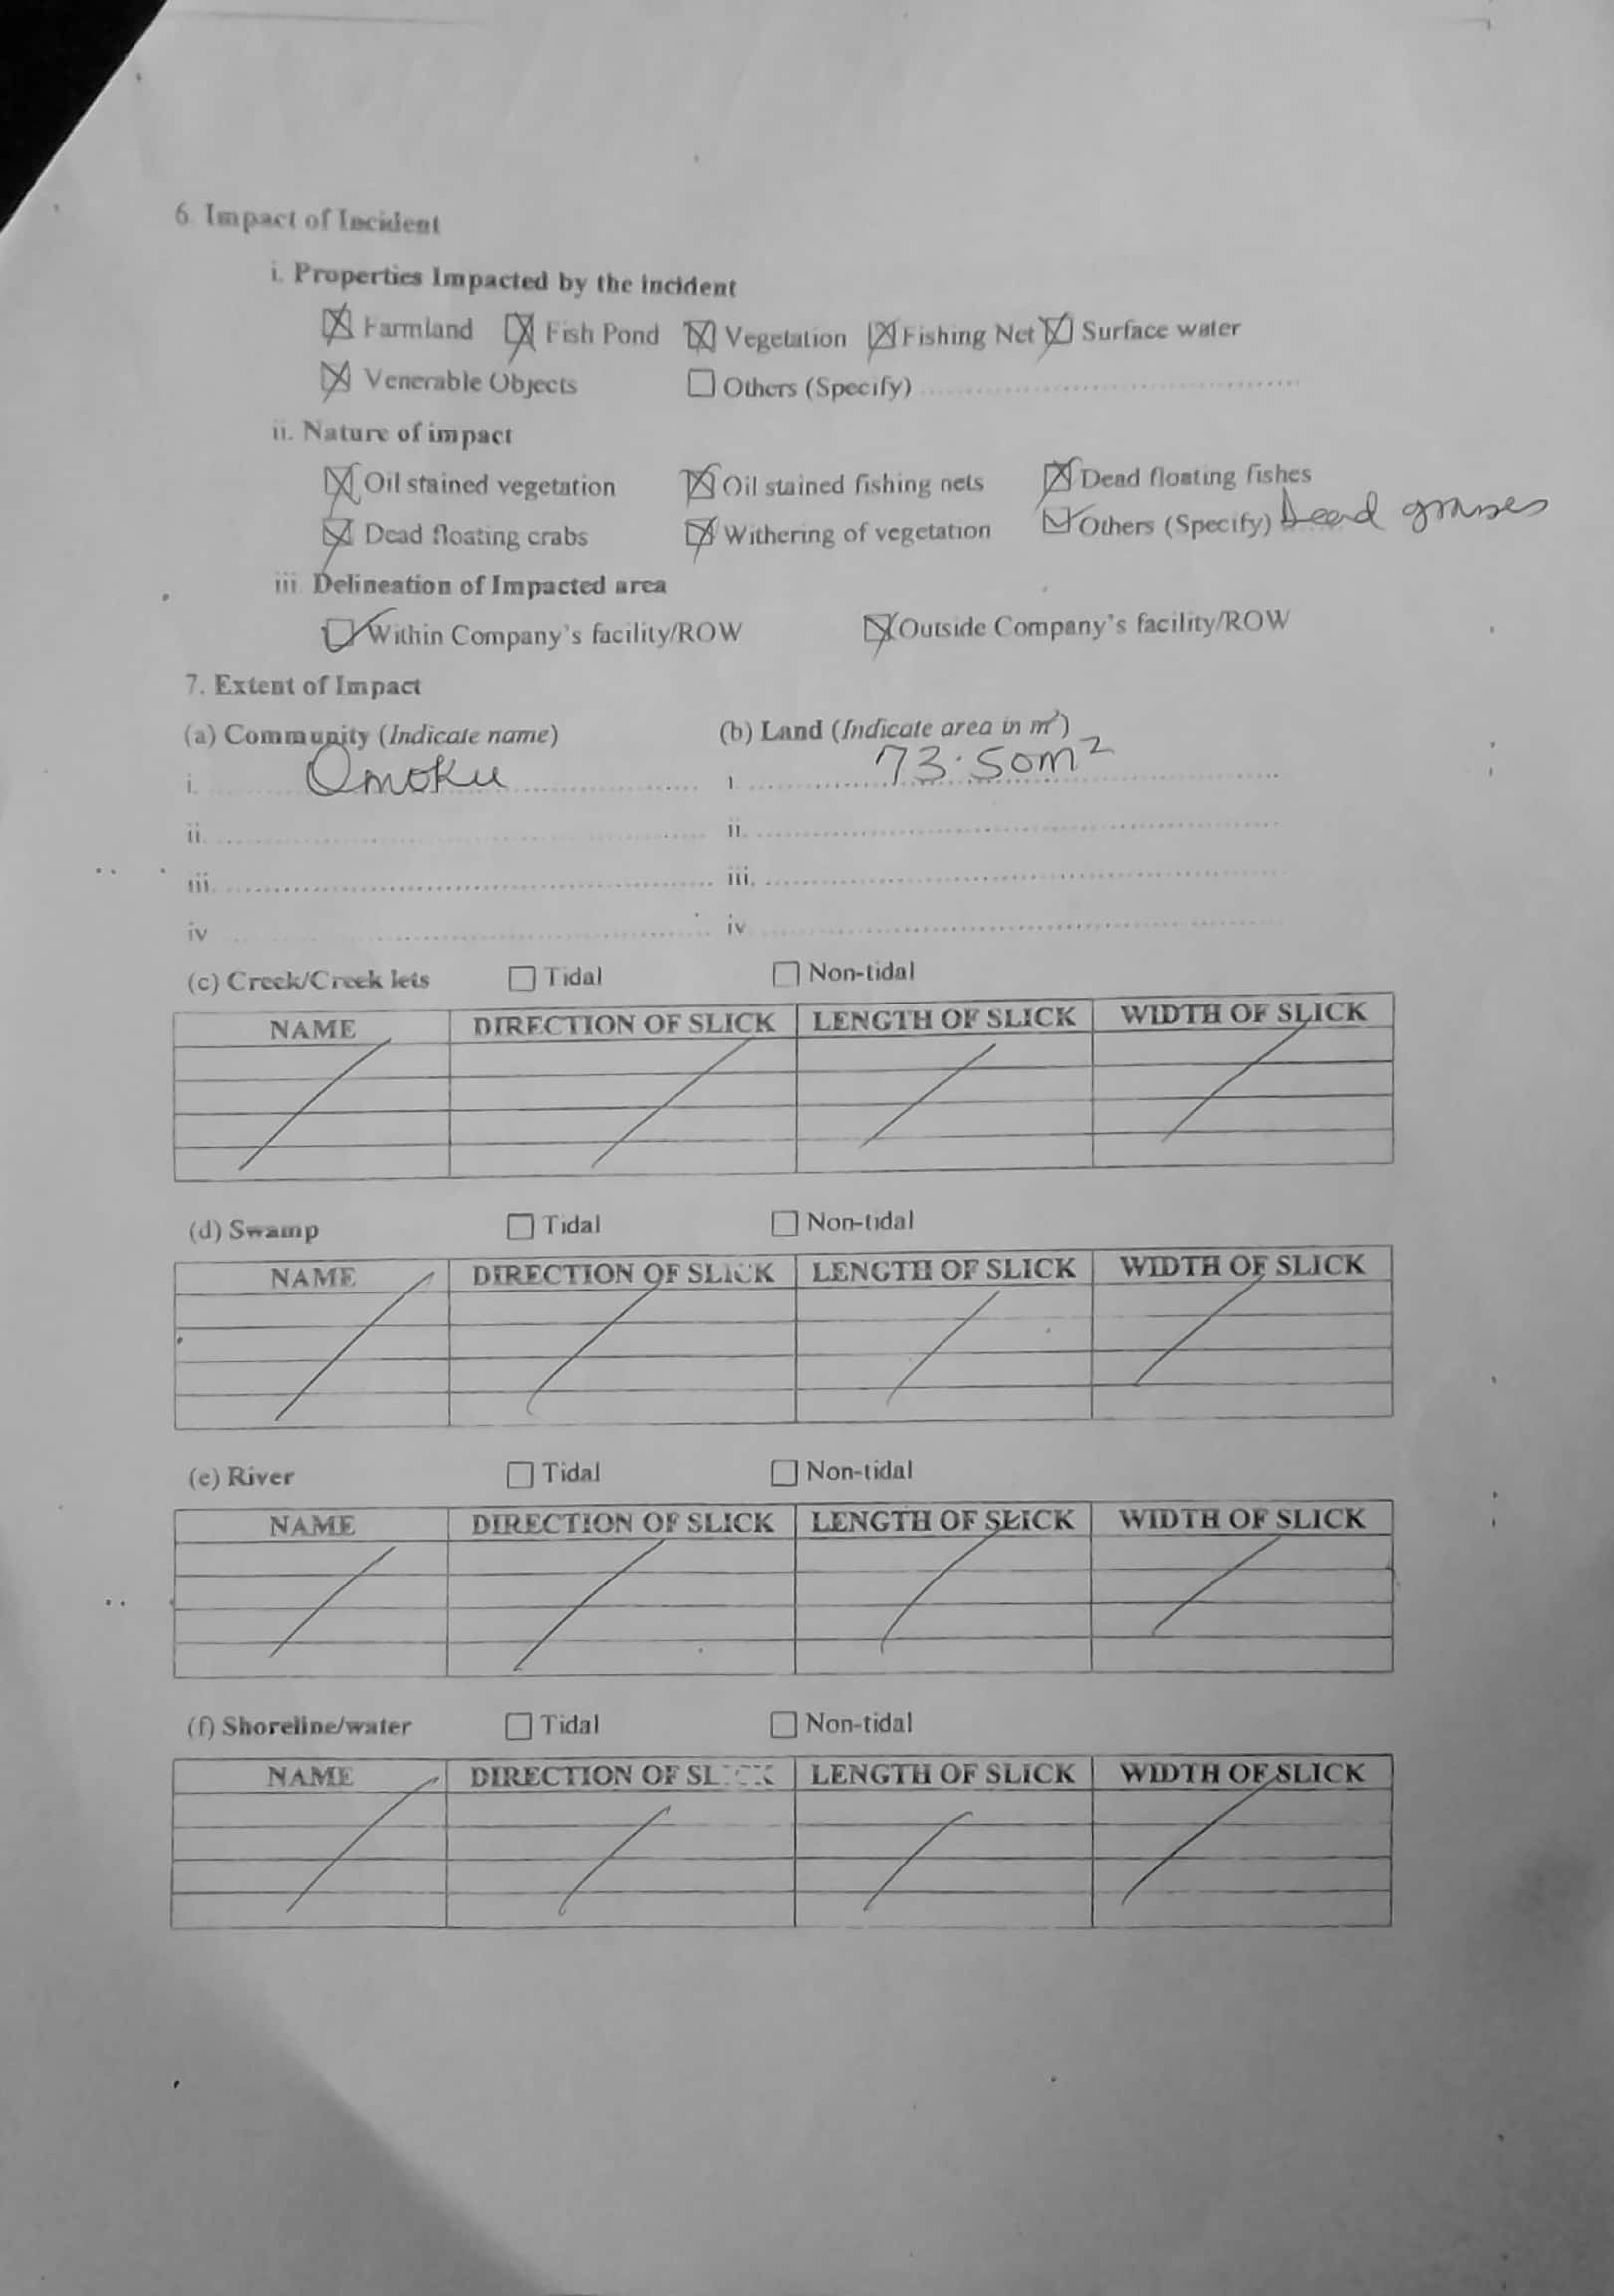 6 Impact of Incident
i. Properties Impacted by the incident
Farmland Fish Pond Vegetation Fishing Net Surface water
Venerable Objects Others (Specify)
ii. Nature of impact
Oil stained vegetation Oil stained fishing nets Dead floating fishes
Dead floating crabs Withering of vegetation Others (Specify) Dead grasses
iii Delineation of Impacted area
Within Company's facility/ROW Outside Company's facility/ROW
7. Extent of Impact
(a) Community (Indicate name) (b) Land (Indicate area in m²)
i. Omoku i. 73.50m²
ii. ii.
iii. iii.
iv iv
(c) Creek/Creek lets Tidal Non-tidal
NAME DIRECTION OF SLICK LENGTH OF SLICK WIDTH OF SLICK
(d) Swamp Tidal Non-tidal
NAME DIRECTION OF SLICK LENGTH OF SLICK WIDTH OF SLICK
(e) River Tidal Non-tidal
NAME DIRECTION OF SLICK LENGTH OF SLICK WIDTH OF SLICK
(f) Shoreline/water Tidal Non-tidal
NAME DIRECTION OF SLICK LENGTH OF SLICK WIDTH OF SLICK